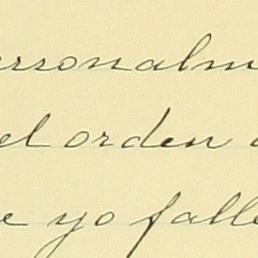 ersonalm
el orden
e yo falle